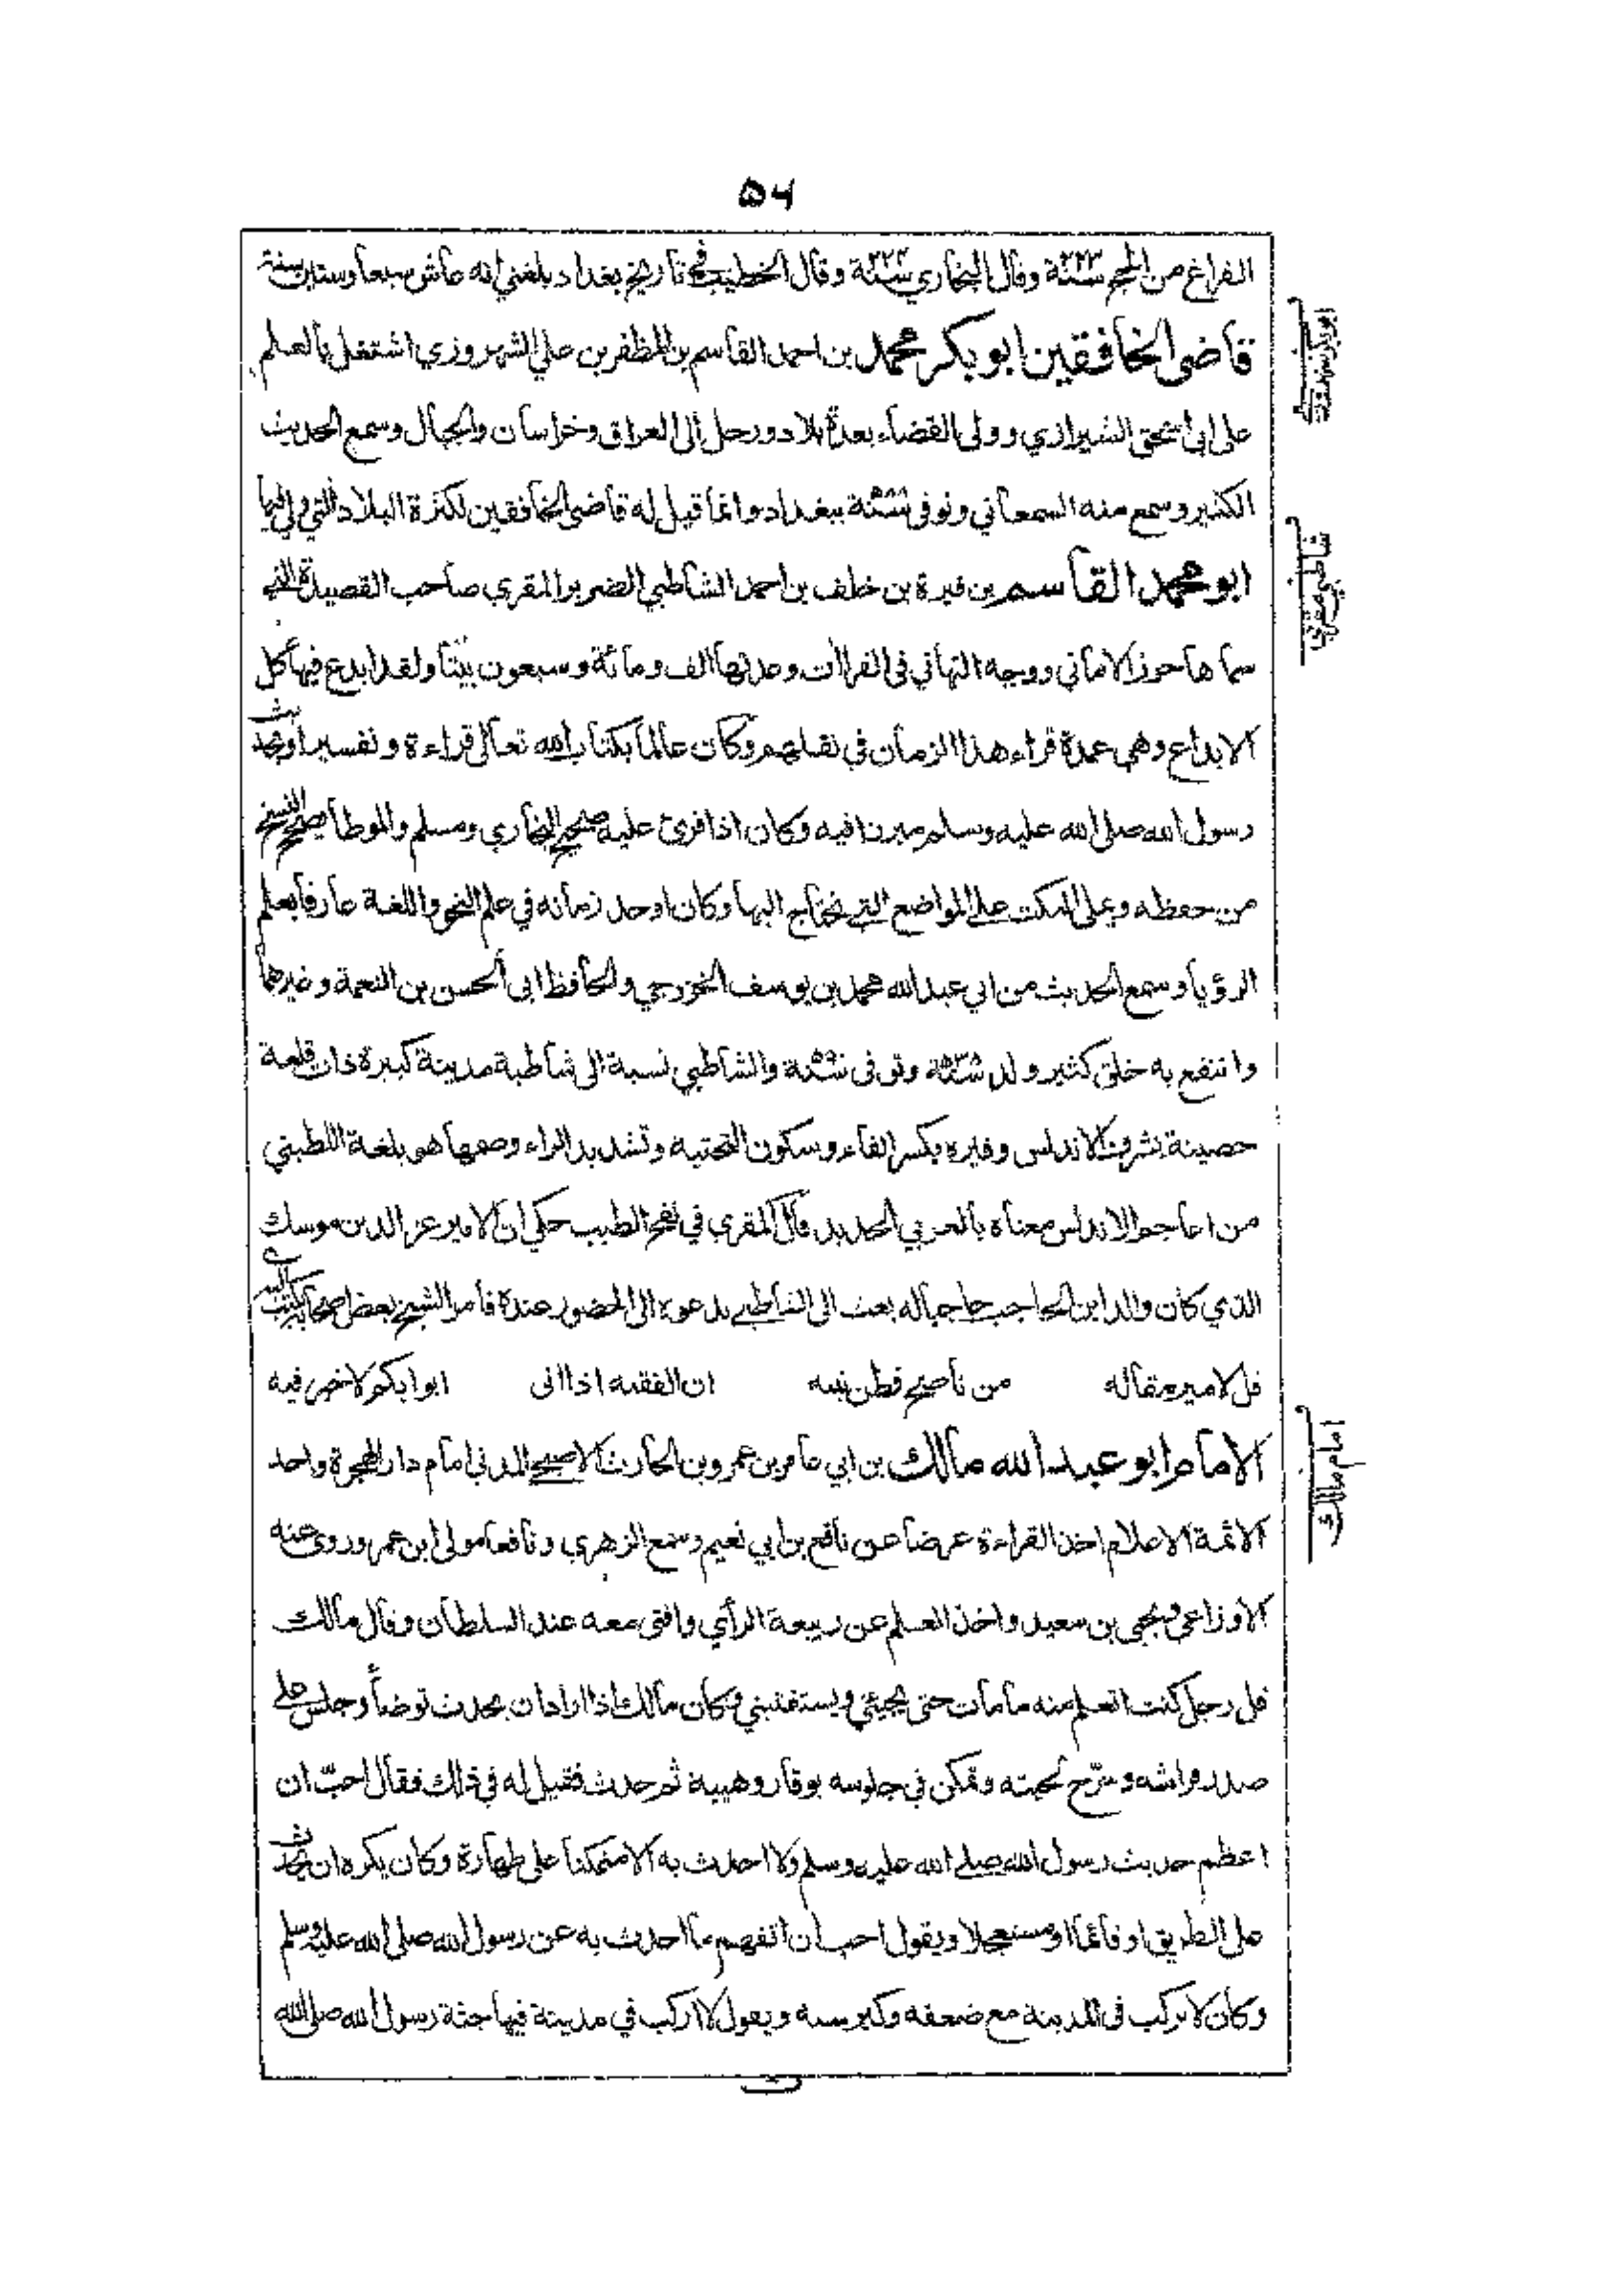 ۵۶
الفراغ من الحج سنة ۲۲۲ وقال البخاري سنة ۲۲۳ وقال الخطيب في تاريخ بغداد بلغني انه عاش سبعا وستين سنة
قاضى الخافقين ابو بكر محمد بن احمد القاسم بن المظفر بن علي الشهروزي اشتغل بالعلم
على ابي اسحق الشيرازي وولى القضاء بعدة بلاد ورحل إلى العراق وخراسان والجبال وسمع الحديث
الكثير وسمع منه السمعاني وتوفى ببغداد وانما قيل له قاضى الخافقين لكثرة البلاد التي ولي فيها
ابو محمد القاسم بن فيرة بن خلف بن احمد الشاطبي الضرير المقري صاحب القصيدة التي
سماها حرز الاماني ووجه التهاني فى القراات وعدتها الف ومائة وسبعون بيتا ولقد ابدع فيها كل
الابداع وهي عمدة قراء هذا الزمان في نقلهم وكان عالما بكتاب الله تعالى قراءة وتفسيرا وبحديث
رسول الله صلى الله عليه وسلم مبرزا فيه وكان اذا قرئ عليه صحيح البخاري ومسلم والموطا يصحح النسخ
من حفظه ويملى النكت على المواضع التي تحتاج اليها وكان اوحد زمانه في علم النحو واللغة عارفا بعلم
الرؤيا وسمع الحديث من ابي عبد الله محمد بن يوسف الخزرجي والحافظ ابى الحسن بن النعمة وغيرهما
وانتفع به خلق كثير ولد سنة ۵۳۸ وتوفى سنة ۵۹۰ والشاطبي نسبة الى شاطبة مدينة كبيرة ذات قلعة
حصينة بشرق الاندلس وفيره بكسر الفاء وسكون التحتية وتشديد الراء وضمها هو بلغة اللطيني
من اعاجم الاندلس معناه بالعربي الحديد قال المقري في نفح الطيب حكي ان الامير عز الدين موسك
الذي كان والد ابن الحاجب حاجبا له بعث الى الشاطبي يدعوه الى الحضور عنده فامر الشيخ بعض اصحابه ان يكتب اليه
قل لامير مقاله من ناصح فطن نبيه ان الفقيه اذا اتى ابوابكم لا خير فيه
الامام ابو عبد الله مالك بن ابي عامر بن عمرو بن الحارث الاصبحي المدنى امام دار الهجرة واحد
الائمة الاعلام اخذ القراءة عرضا عن نافع بن ابي نعيم وسمع الزهري ونافعا مولى ابن عمر وروى عنه
الاوزاعي ويحيى بن سعيد واخذ العلم عن ربيعة الرأي وافتى معه عند السلطان وقال مالك
قل رجل كنت اتعلم منه ما مات حتى يجيئني ويستفتيني وكان مالك اذا اراد ان يحدث توضأ وجلس على
صدر فراشه وسرّح لحيته وتمكن في جلوسه بوقار وهيبة ثم حدث فقيل له في ذلك فقال احبّ ان
اعظم حديث رسول الله صلى الله عليه وسلم ولا احدث به الا متمكنا على طهارة وكان يكره ان يحدث
على الطريق او قائما او مستعجلا ويقول احب ان اتفهم ما احدث به عن رسول الله صلى الله عليه وسلم
وكان لا يركب فى المدينة مع ضعفه وكبر سنه ويقول لا اركب في مدينة فيها جثة رسول الله صلى الله
امام مالك